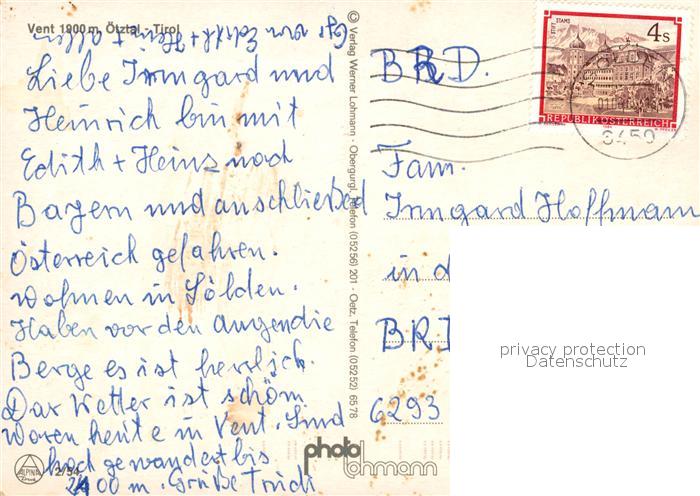 Vent 1900 m, Ötztal - Tirol
Liebe Irmgard und
Heinrich bin mit
Edith + Heinz nach
Bayern und anschließed
Österreich gefahren.
wohnen in Sölden.
Haben vor den augendie
Berge es ist herrlich.
Das Wetter ist schön
waren heute in Vent. Sind
hoch gewandert bis
2400 m. Grüße Trudi
ALPINA
2/54
© Verlag Werner Lohmann - Obergurgl, Telefon (05256) 201 - Oetz, Telefon (05252) 6578
photo
lohmann
STIFT STAMS
4 S
REPUBLIK ÖSTERREICH
6450
BRD.
Fam.
Irmgard Hoffmann
in d
BRD
6293
privacy protection
Datenschutz